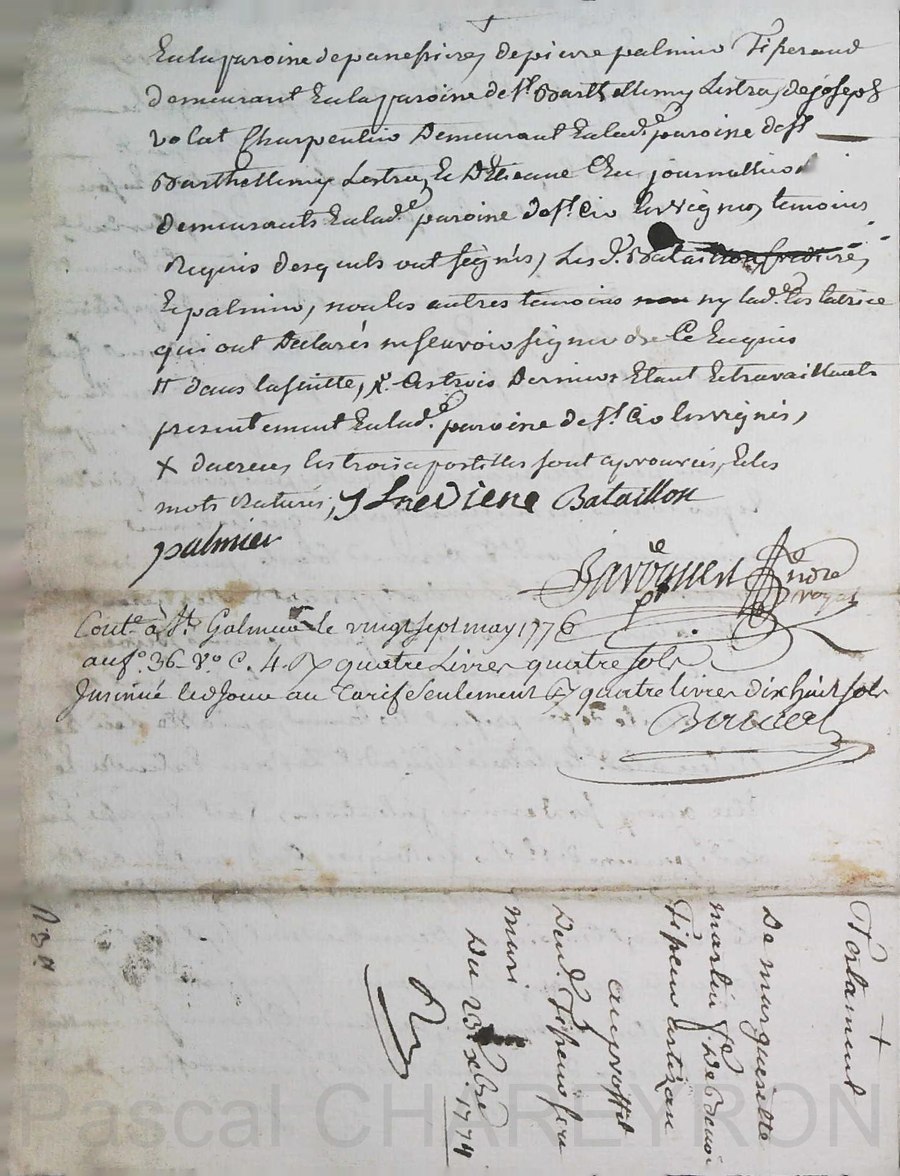 En la paroine de panessieres de pierre palmier Tisserand
demeurant En la paroine de st. Barthellemy Lestra, de joseph
volat Charpentier Demeurant En lad.e paroine de st.
Barthellemy Lestra, & D'Etienne journallier
demeurants En lad.e paroine de st. Cir les vignes, temoins
Requis desquels ont signés, Les d.
& palmier, non les autres temoins ny lad.e testatrice
qui ont Declarés ne scavoir signer de Ce Enquis
dans la suitte, & Ces trois Derniers Etant & travaillants
presentement En lad.e paroine de st. Cir les vignes,
X les trois apostilles sont aprouvées, & les
mots Raturés, Bataillon
palmier
André
Cont.é à St. Galmier le vingt sept may 1776
au f.o 36 v.o C. 4. R quatre Livres quatre sols
Insinué led jour au Tarif seulement R quatre livres dix huit sols
Testament
De margueritte
martin f.e De Benoit
artizan
au proffit
Dud. son
mari
Du 23 xbre 1774
Pascal CHAREYRON